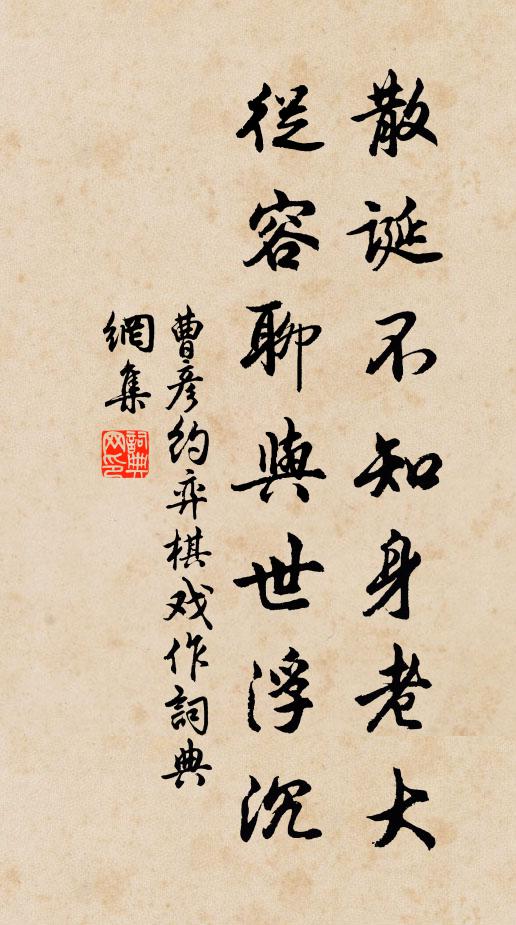 散誕不知身老大
從容聊與世浮沉
曹彦约弈棋戏作詞典
網集
詞典
网印